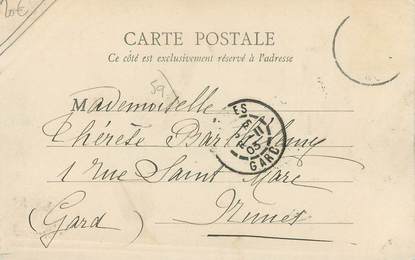 20€
CARTE POSTALE
Ce côté est exclusivement réservé à l'adresse
59
Mademoiselle
Thérèse
1 Rue Saint Marc
(Gard) Nimes
ES
GARD